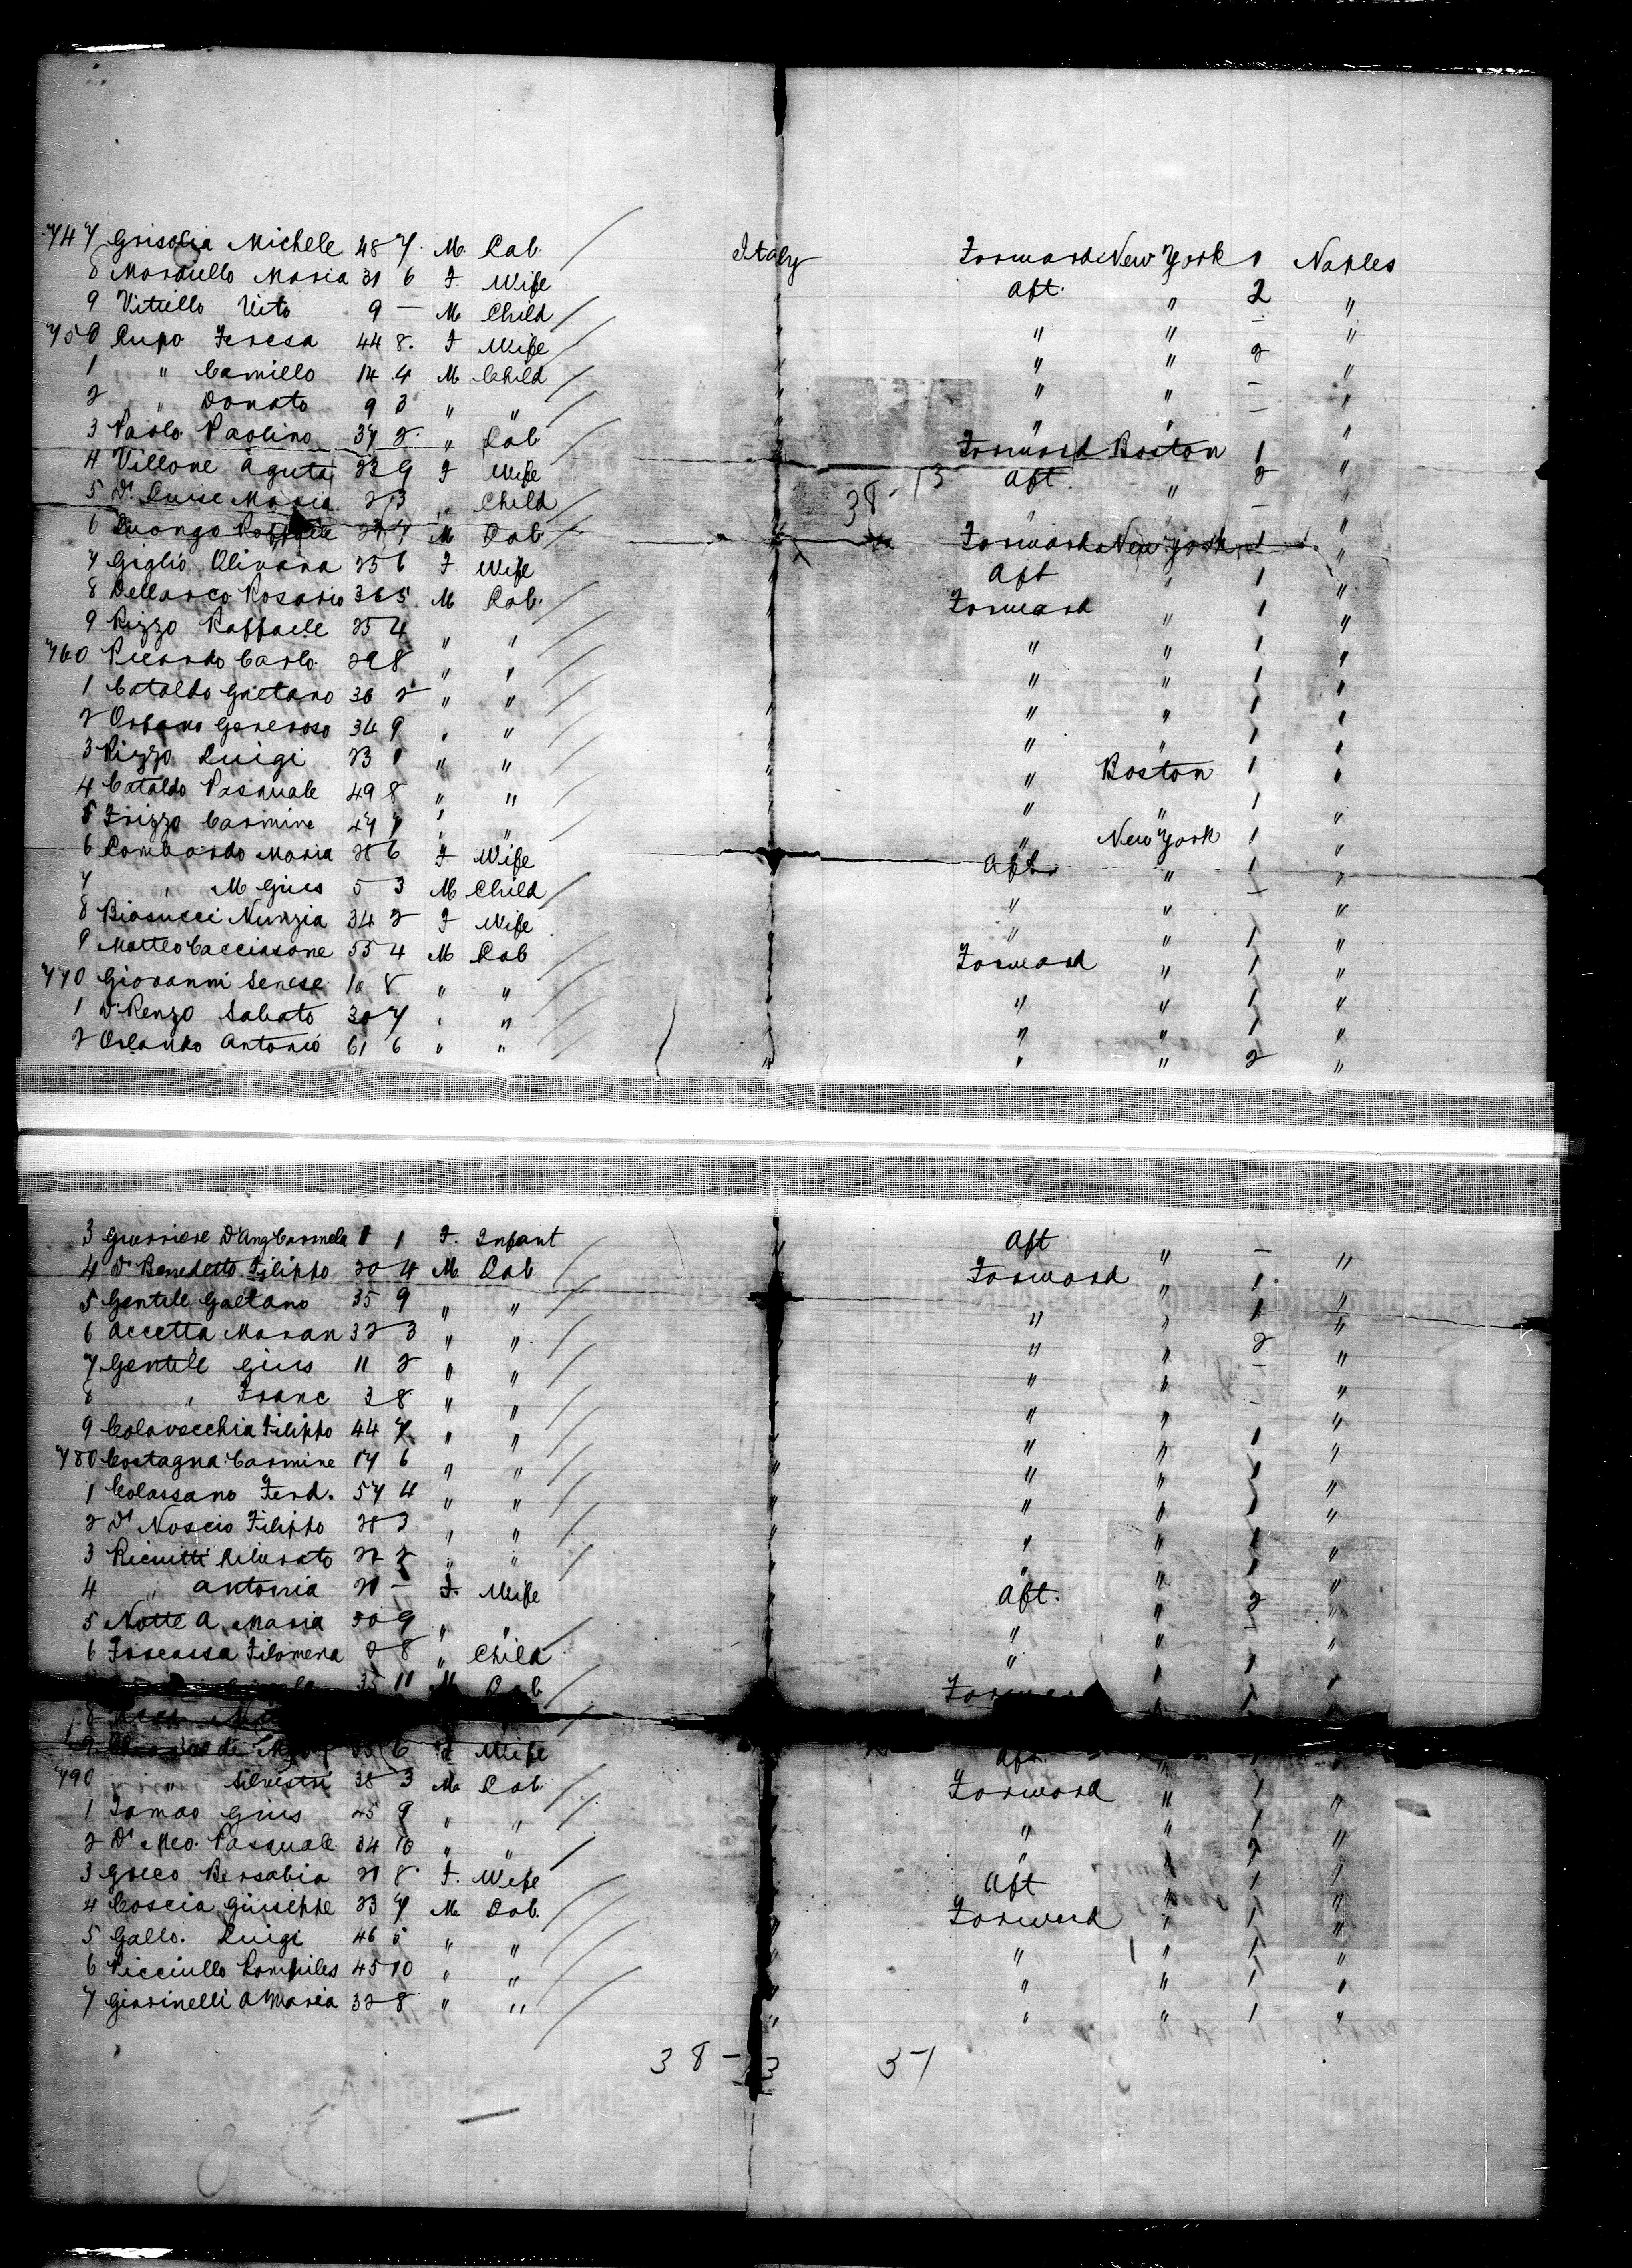 747 Grisolia Michele 48 7. M. Lab. Italy Forward New York 1 Naples
8 Mordiello Maria 31 6 F Wife Aft. " 2 "
9 Vitiello Vito 9 — M Child " " " — "
750 Lupo Teresa 44 8. F Wife " " 2 "
1 " Camillo 14 4 M Child " " " — "
2 " Donato 9 3 " " " " " — "
3 Paolo Paolino 37 2. " Lab. " Forward Boston 1 "
4 Villone Aguta 32 9 F Wife Aft. " 2 "
5 Di Luise Maria 2 3 " Child " " — "
38-13
6 Luongo Raffaele 27 7 M Lab. " Forward New York 1 "
7 Giglio Olivana 25 6 F Wife " Aft " 1 "
8 Dellarco Rosario 36 5. M Lab. " Forward " 1 "
9 Rizzo Raffaele 25 4 " " " " " 1 "
760 Picardo Carlo 29 8 " " " " " 1 "
1 Cataldo Gaetano 36 2 " " " " " 1 "
2 Orfano Generoso 34 9 " " " " " 1 "
3 Rizzo Luigi 23 1 " " " " Boston 1 "
4 Cataldo Pasquale 49 8 " " " " 1 "
5 Frizzo Carmine 47 7 " " " New York 1 "
6 Lombardo Maria 28 6 F Wife Aft. " 1 "
7 " M Gius 5 3 M Child " " — "
8 Biasucci Nunzia 34 2 F Wife " " 1 "
9 Matteo Cacciasone 55 4 M Lab Forward " 1 "
770 Giovanni Senese 18 8 " " " " 1 "
1 Di Renzo Sabato 30 7 " " " " 1 "
2 Orlando Antonio 61 6 " " " " " 2 "
3 Guerriere D'Ang Carmela 1 1 F. Infant " Aft " — "
4 Di Benedetto Filippo 20 4 M. Lab " Forward " 1 "
5 Gentile Gaetano 35 9 " " " " 1 "
6 Accetta Maran 32 3 " " " " " 2 "
7 Gentile Gius 11 2 " " " " " — "
8 " Franc 3 8 " " " " " — "
9 Colavecchia Filippo 44 7. " " " " " 1 "
780 Costagna Carmine 17 6 " " " " " 1 "
1 Colassano Ferd. 57 4 " " " " " 1 "
2 Di Noscio Filippo 28 3 " " " " " 1 "
3 Riciutti Liberato 22 2 " " " " " 1 "
4 " Antonia 21 — F. Wife " Aft. " 2 "
5 Notte A Maria 30 9 " " " " " — "
6 Foscassa Filomena 8 " Child " " " 1 "
35 11 M Lab 1 "
8
9 de 6 F Wife " Aft. "
790 " Silvestri 38 3 M Lab. " Forward " 1 "
1 Tomao Gius 45 9 " " " " " 1 "
2 Di Meo Pasquale 34 10 " " " " " 2 "
3 Greco Bersabia 21 8 F. Wife " Aft " 1 "
4 Coscia Giuseppe 23 7 M Lab. " Forward " 1 "
5 Gallo. Luigi 46 5 " " " " " 1 "
6 Picciullo Pompiles 45 10 " " " " " 1 "
7 Giarinelli A Maria 32 8 " " " " " 1 "
38-13 37